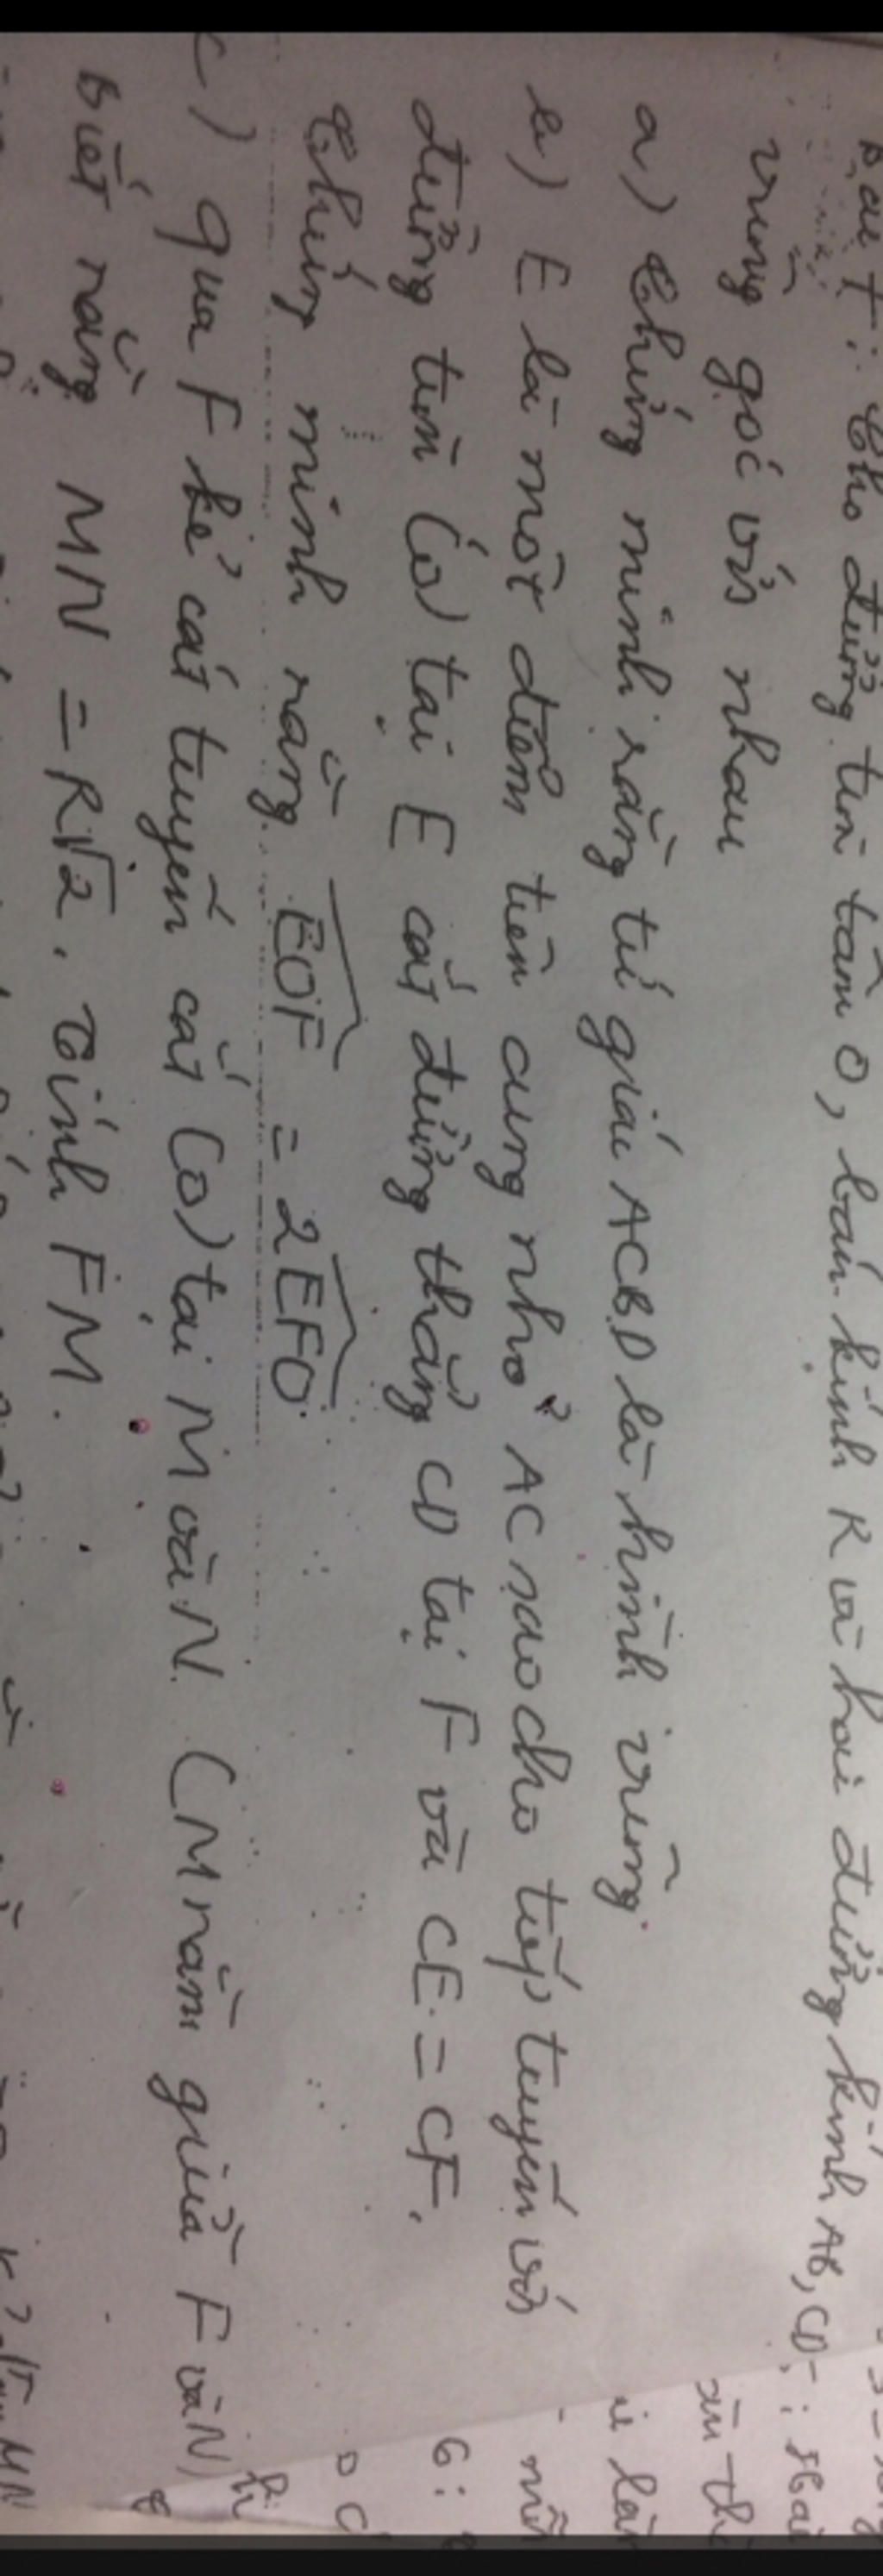 Cho đường tròn tâm O, bán kính R và hai đường kính AB, CD
vuông góc với nhau
a) Chứng minh rằng tứ giác ACBD là hình vuông.
b) E là một điểm trên cung nhỏ AC sao cho tiếp tuyến với
đường tròn (O) tại E cắt đường thẳng CD tại F và CE = CF.
Chứng minh rằng EOF = 2EFO.
c) qua F kẻ cát tuyến cắt (O) tại M và N. (M nằm giữa F và N)
Biết rằng MN = R√2. Tính FM.